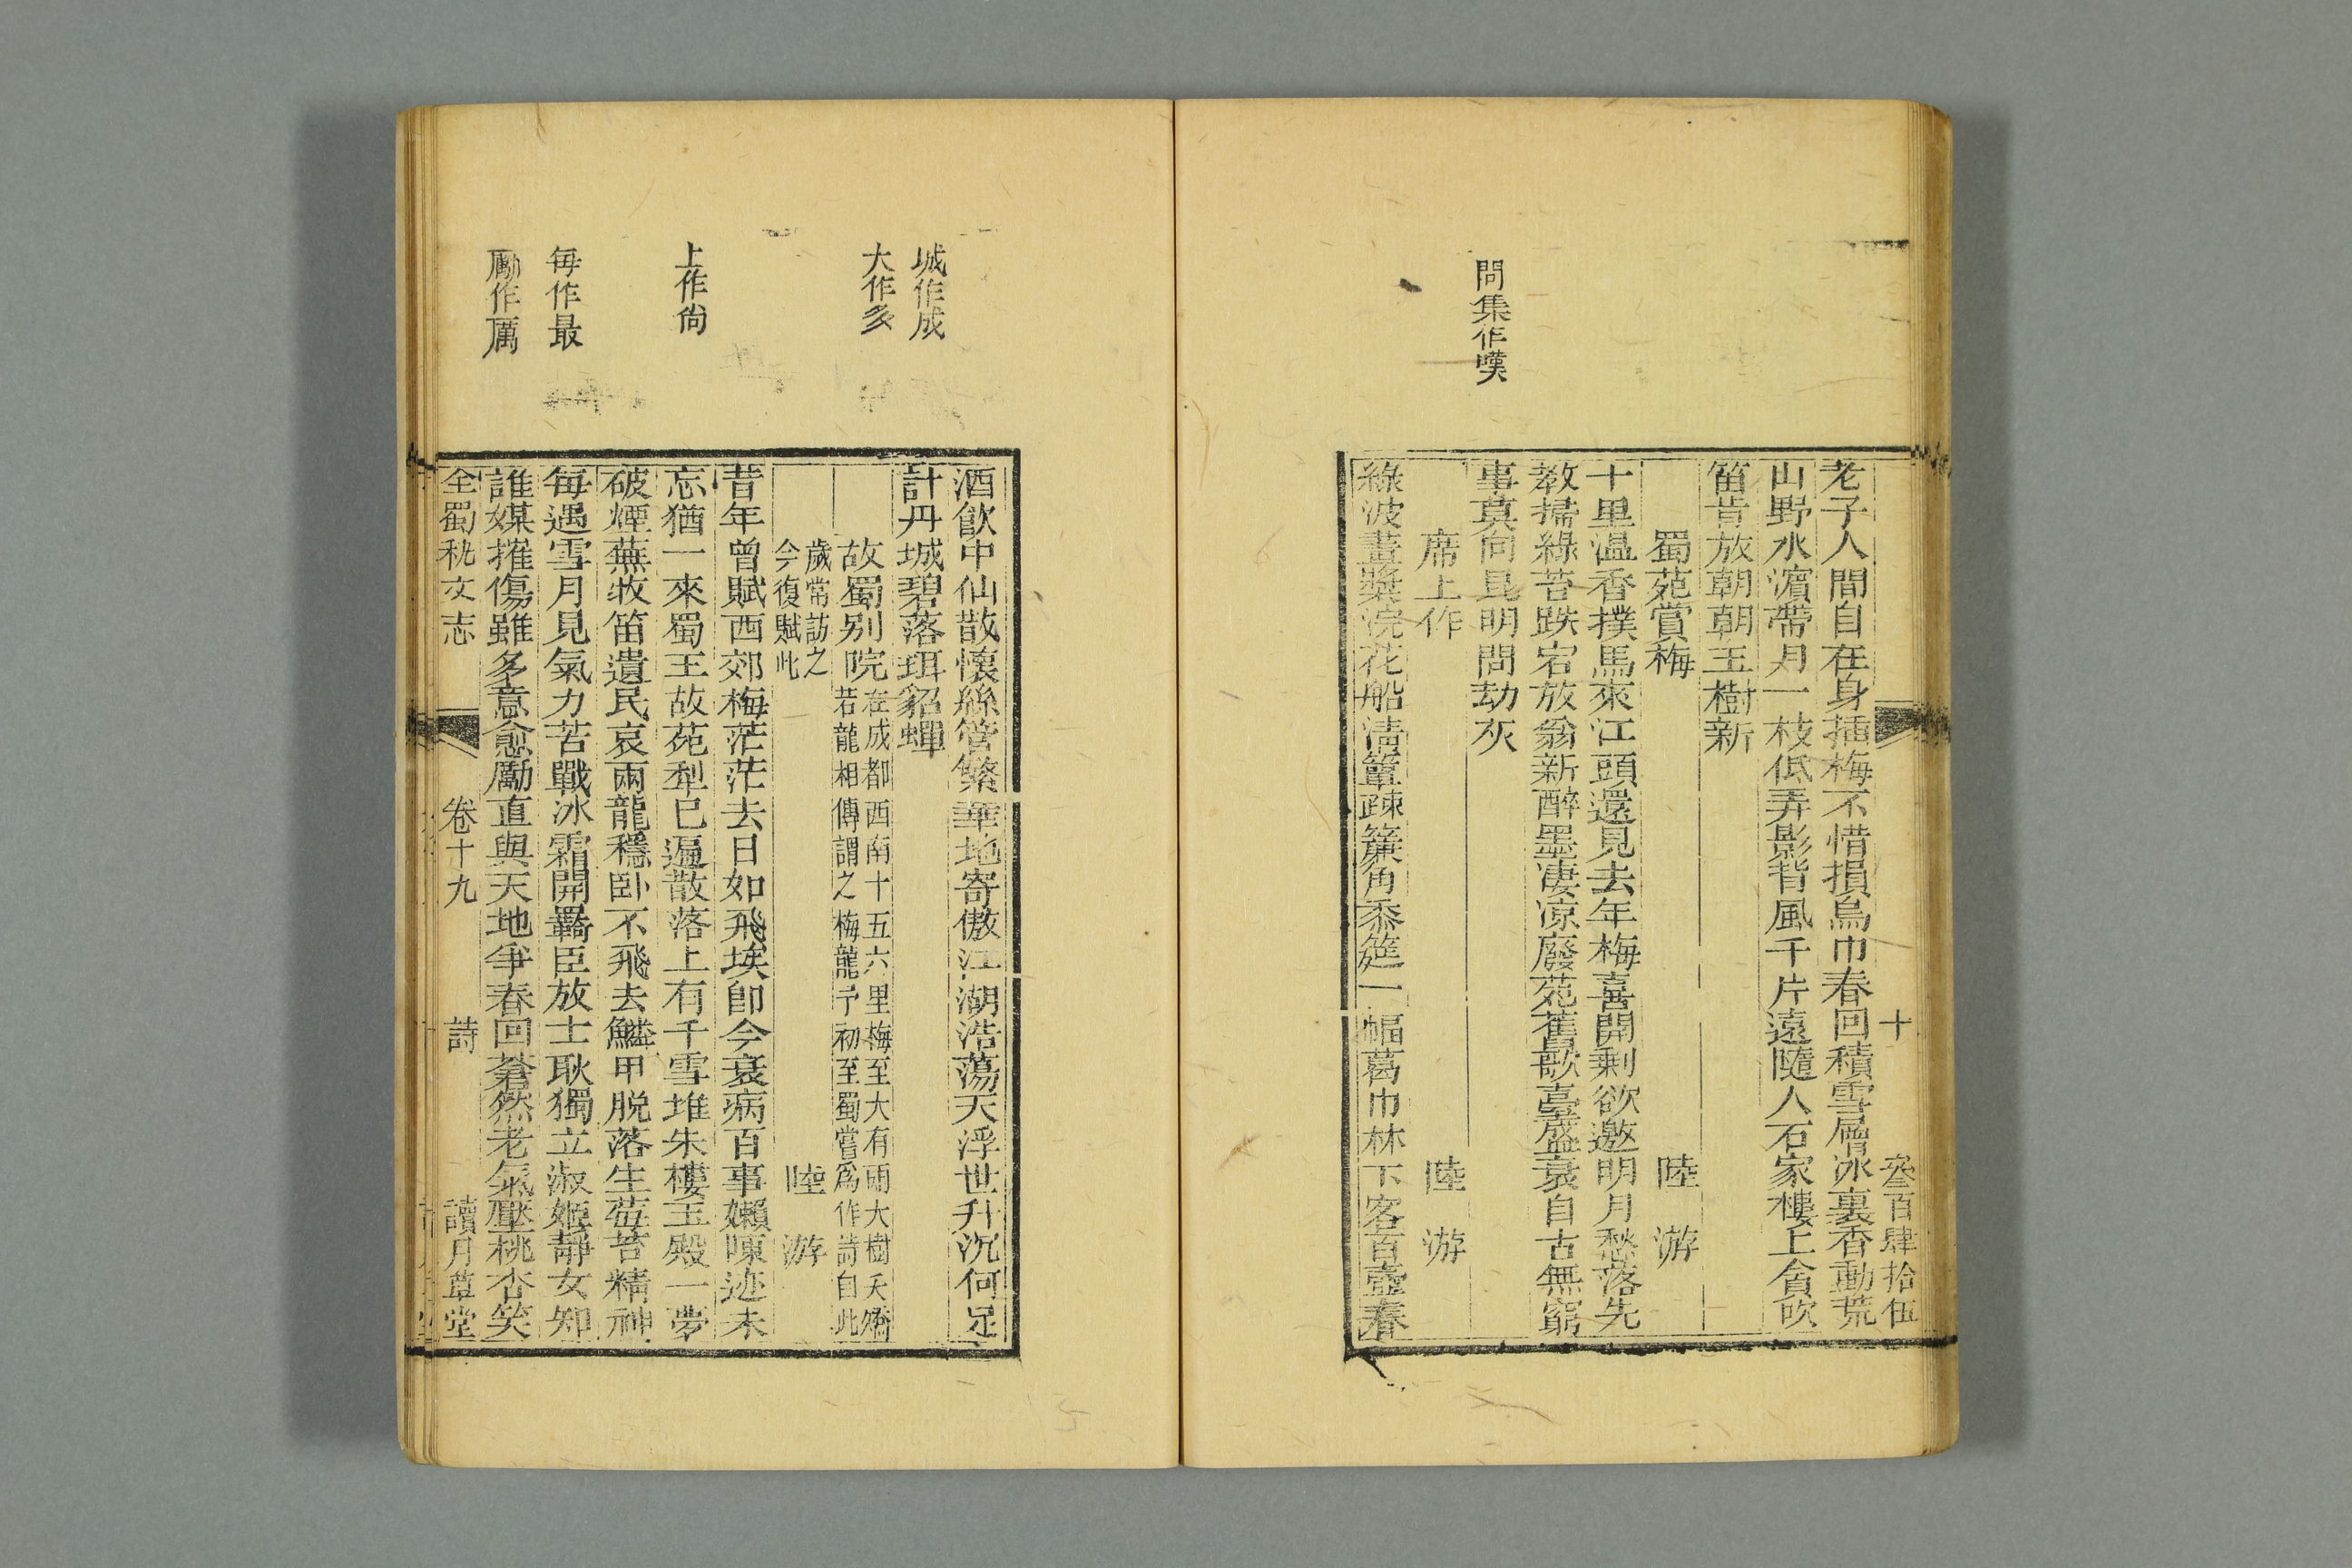 問集作嘆
十　叄百肆拾伍
老子人間自在身插梅不惜損烏巾春回積雪層冰裏香動荒
山野水濵帶月一枝低弄影背風千片遠隨人石家樓上貪吹
笛肯放朝朝玉樹新
蜀苑賞梅　陸游
十里温香撲馬來江頭還見去年梅喜開剩欲邀明月愁落先
教掃綠苔跌宕放翁新醉墨凄凉廢苑舊歌臺盛衰自古無窮
事莫向昆明問劫灰
席上作　陸游
綠波畫槳浣花船淸簟疎簾角黍筵一幅葛巾林下客百壺春
城作成
大作多
上作尙
每作最
勵作厲
酒飲中仙散懷絲管繁華地寄傲江湖浩蕩天浮世升沉何足
計丹城碧落珥貂蟬
故蜀别院在成都西南十五六里梅至大有兩大樹夭矯
若龍相傳謂之梅龍予初至蜀嘗爲作詩自此
歲常訪之
今復賦此　陸游
昔年曾賦西郊梅茫茫去日如飛埃卽今衰病百事嬾陳迹未
忘猶一來蜀王故苑犁已遍散落上有千雪堆朱樓玉殿一夢
破煙蕪牧笛遺民哀兩龍穩卧不飛去鱗甲脱落生莓苔精神
每遇雪月見氣力苦戰冰霜開羈臣放士耿獨立淑姬靜女知
誰媒摧傷雖多意愈勵直與天地爭春回蒼然老氣壓桃杏笑
全蜀秇文志　卷十九　詩　讀月草堂